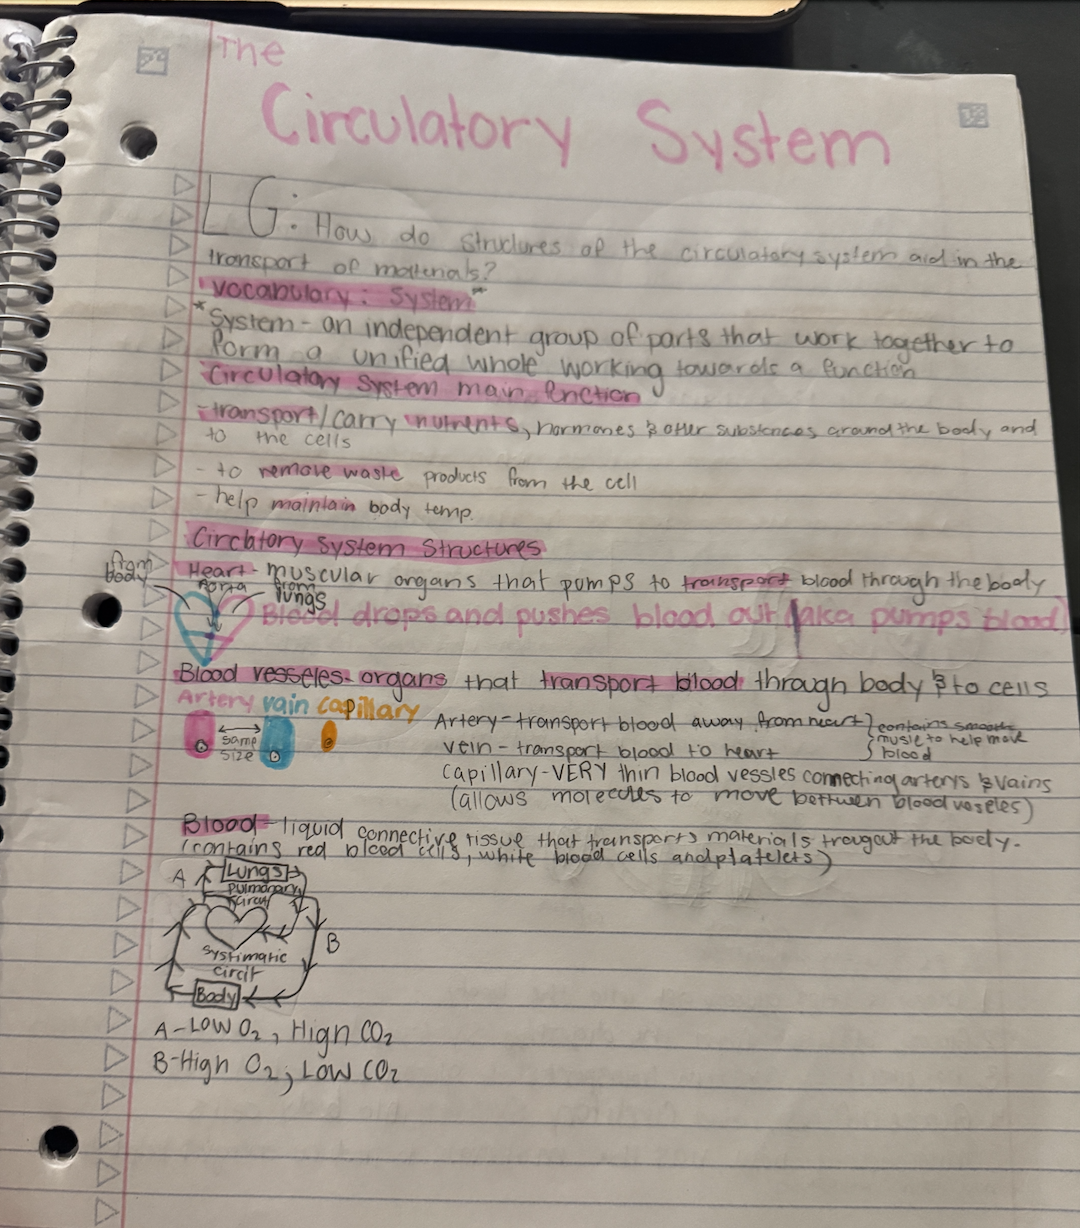 The
Circulatory System
LG: How do structures of the circulatory system aid in the
transport of materials?
Vocabulary: System*
*System - an independent group of parts that work together to
form a unified whole working towards a function
Circulatory System main function
-transport/carry nutrients, hormones & other substances around the body and
to the cells
- to remove waste products from the cell
- help maintain body temp.
Circltory System Structures
from
body
Heart - muscular organs that pumps to transport blood through the body
Aorta
from
lungs
Blood drops and pushes blood out (aka pumps blood)
Blood vesseles- organs that transport blood through body & to cells
Artery vain capillary
same
size
Artery - transport blood away from heart } contains smooth
musle to help move
blood
vein - transport blood to heart
capillary-VERY thin blood vessles connecting arterys & vains
(allows molecules to move bettwen blood veseles)
Blood - liquid connective tissue that transports materials trougout the body.
(contains red blood cells, white blood cells and platelets)
A
Lungs
pulmonary
B
systimatic
circit
Body
A-LOW O2, High CO2
B-High O2, LOW CO2